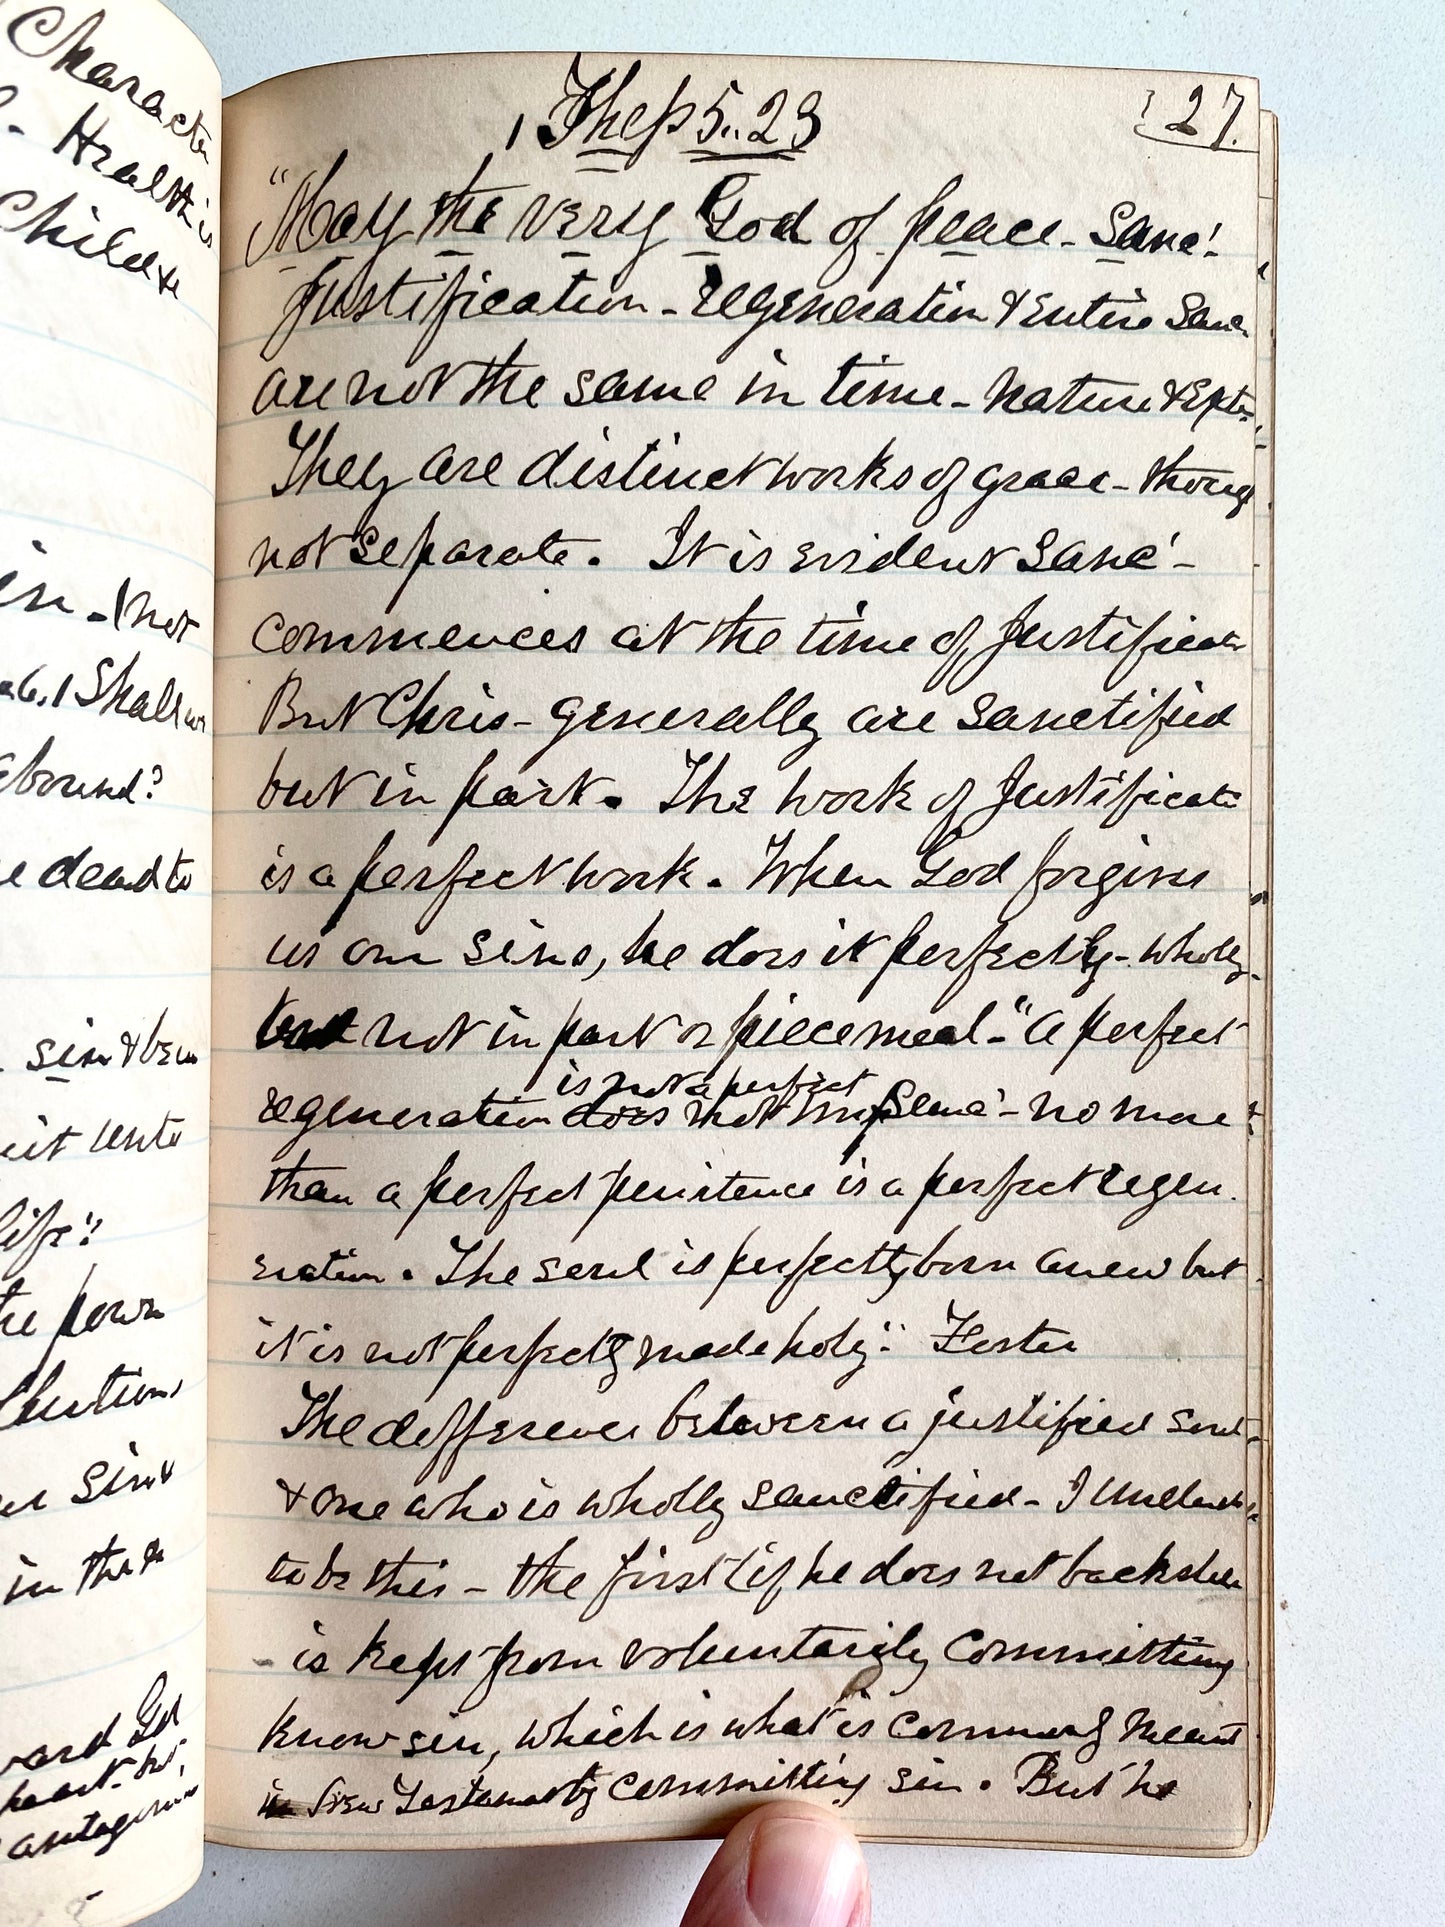 Character
Health is
Child &
in - not
Shall we
abound?
dead to
sin & been
unto
life"
the power
sin &
in the
antagonism
27.
1 Thess 5..23
"May the very God of peace - Sanc'.
Justification - regeneration & Entire Sanc
are not the same in time - nature & Extn
They are distinct works of grace - though
not separate. It is evident Sanc' -
commences at the time of Justificat
But Chris - generally are sanctified
but in part. The work of Justificati
is a perfect work. When God forgives
us our sins, he does it perfectly - wholly
but not in part or piecemeal - "a perfect
is not a perfect
regeneration does not imp Sanc' - no more
than a perfect penitence is a perfect regen.
eration. The soul is perfectly born anew but
it is not perfectly made holy". Foster
The difference between a justified soul
& one who is wholly sanctified - I understand
to be this - the first (if he does not backslide
is kept from voluntarily committing
know sin, which is what is commonly meant
in New Testament by committing sin. But he